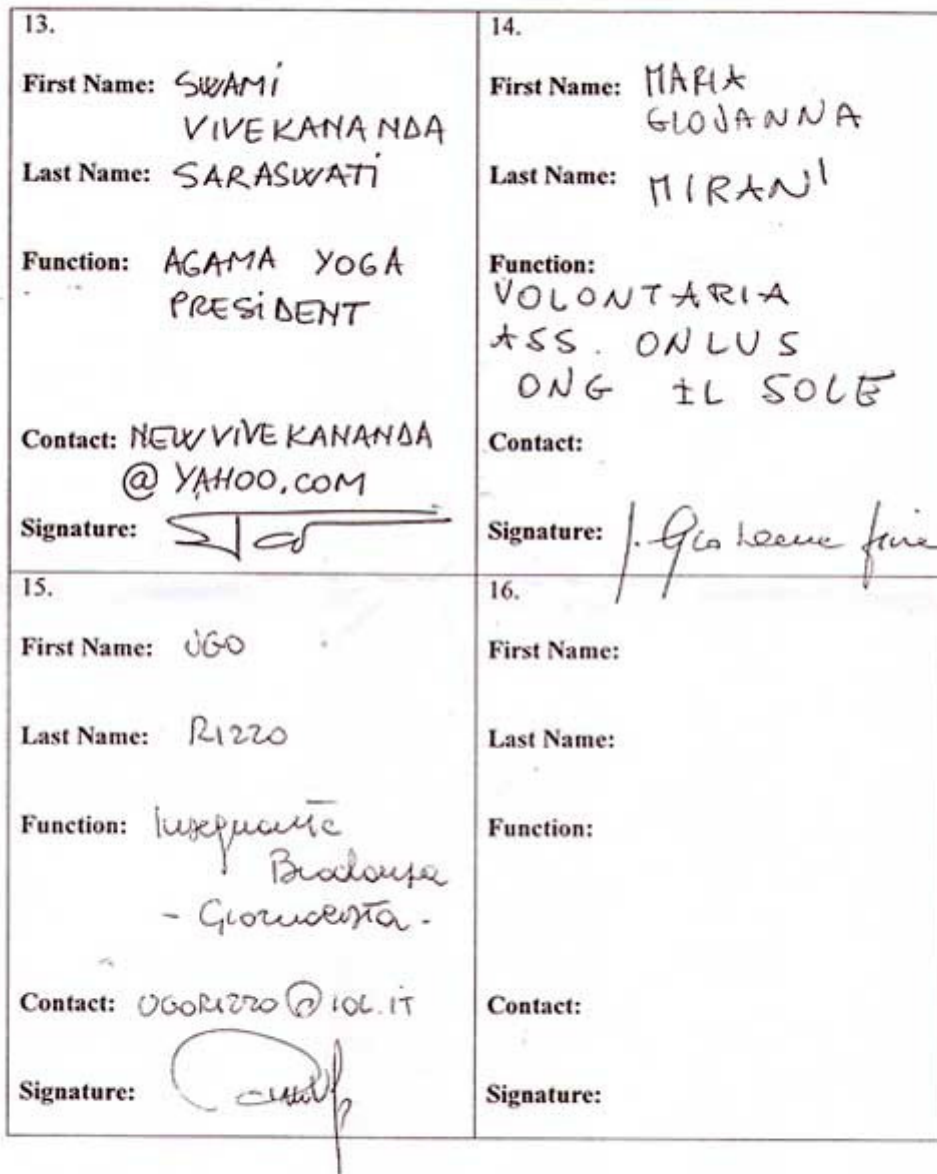 13.
First Name: SWAMI
VIVEKANANDA
Last Name: SARASWATI
Function: AGAMA YOGA
PRESIDENT
Contact: NEWVIVEKANANDA
@YAHOO.COM
Signature:
14.
First Name: MARIA
GIOVANNA
Last Name: MIRANI
Function:
VOLONTARIA
ASS. ONLUS
ONG IL SOLE
Contact:
Signature:
15.
First Name: UGO
Last Name: RIZZO
Function: Insegnante
Biodanza
- Giornalista -
Contact: UGORIZZO@IOL.IT
Signature:
16.
First Name:
Last Name:
Function:
Contact:
Signature: